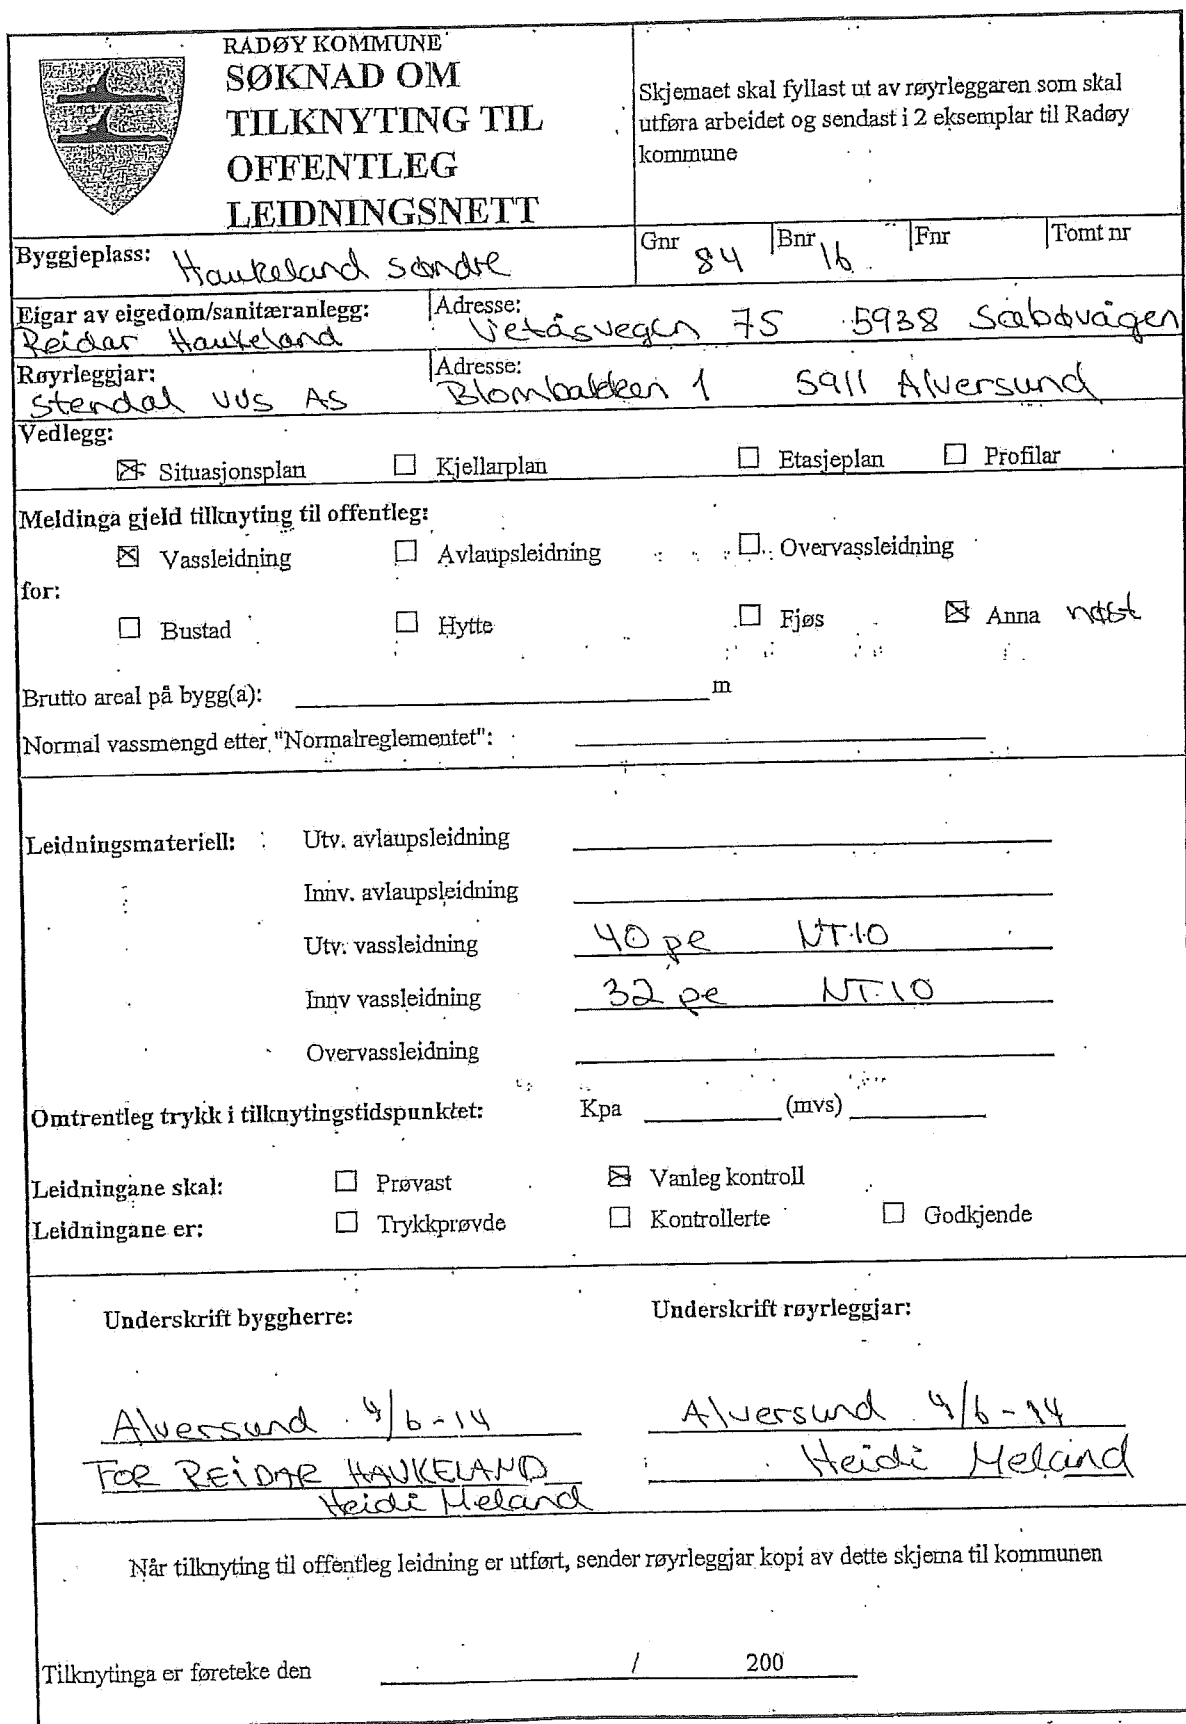 RADØY KOMMUNE
SØKNAD OM
TILKNYTING TIL
OFFENTLEG
LEIDNINGSNETT
Skjemaet skal fyllast ut av røyrleggaren som skal
utføra arbeidet og sendast i 2 eksemplar til Radøy
kommune
Byggjeplass: Haukeland søndre
Gnr 84 Bnr 16 Fnr Tomt nr
Eigar av eigedom/sanitæranlegg: Adresse:
Reidar Haukeland Vetåsvegen 75 5938 Sæbøvågen
Røyrleggjar: Adresse:
Stendal VVS AS Blombakken 1 5911 Alversund
Vedlegg:
☒ Situasjonsplan ☐ Kjellarplan ☐ Etasjeplan ☐ Profilar
Meldinga gjeld tilknyting til offentleg:
☒ Vassleidning ☐ Avlaupsleidning ☐ Overvassleidning
for:
☐ Bustad ☐ Hytte ☐ Fjøs ☒ Anna nøst
Brutto areal på bygg(a): m
Normal vassmengd etter "Normalreglementet":
Leidningsmateriell: Utv. avlaupsleidning
Innv. avlaupsleidning
Utv. vassleidning 40 pe NT.10
Innv vassleidning 32 pe NT.10
Overvassleidning
Omtrentleg trykk i tilknytingstidspunktet: Kpa (mvs)
Leidningane skal: ☐ Prøvast ☒ Vanleg kontroll
Leidningane er: ☐ Trykkprøvde ☐ Kontrollerte ☐ Godkjende
Underskrift byggherre: Underskrift røyrleggjar:
Alversund 4/6-14 Alversund 4/6-14
FOR REIDAR HAUKELAND Heidi Meland
Heidi Meland
Når tilknyting til offentleg leidning er utført, sender røyrleggjar kopi av dette skjema til kommunen
Tilknytinga er føreteke den / 200